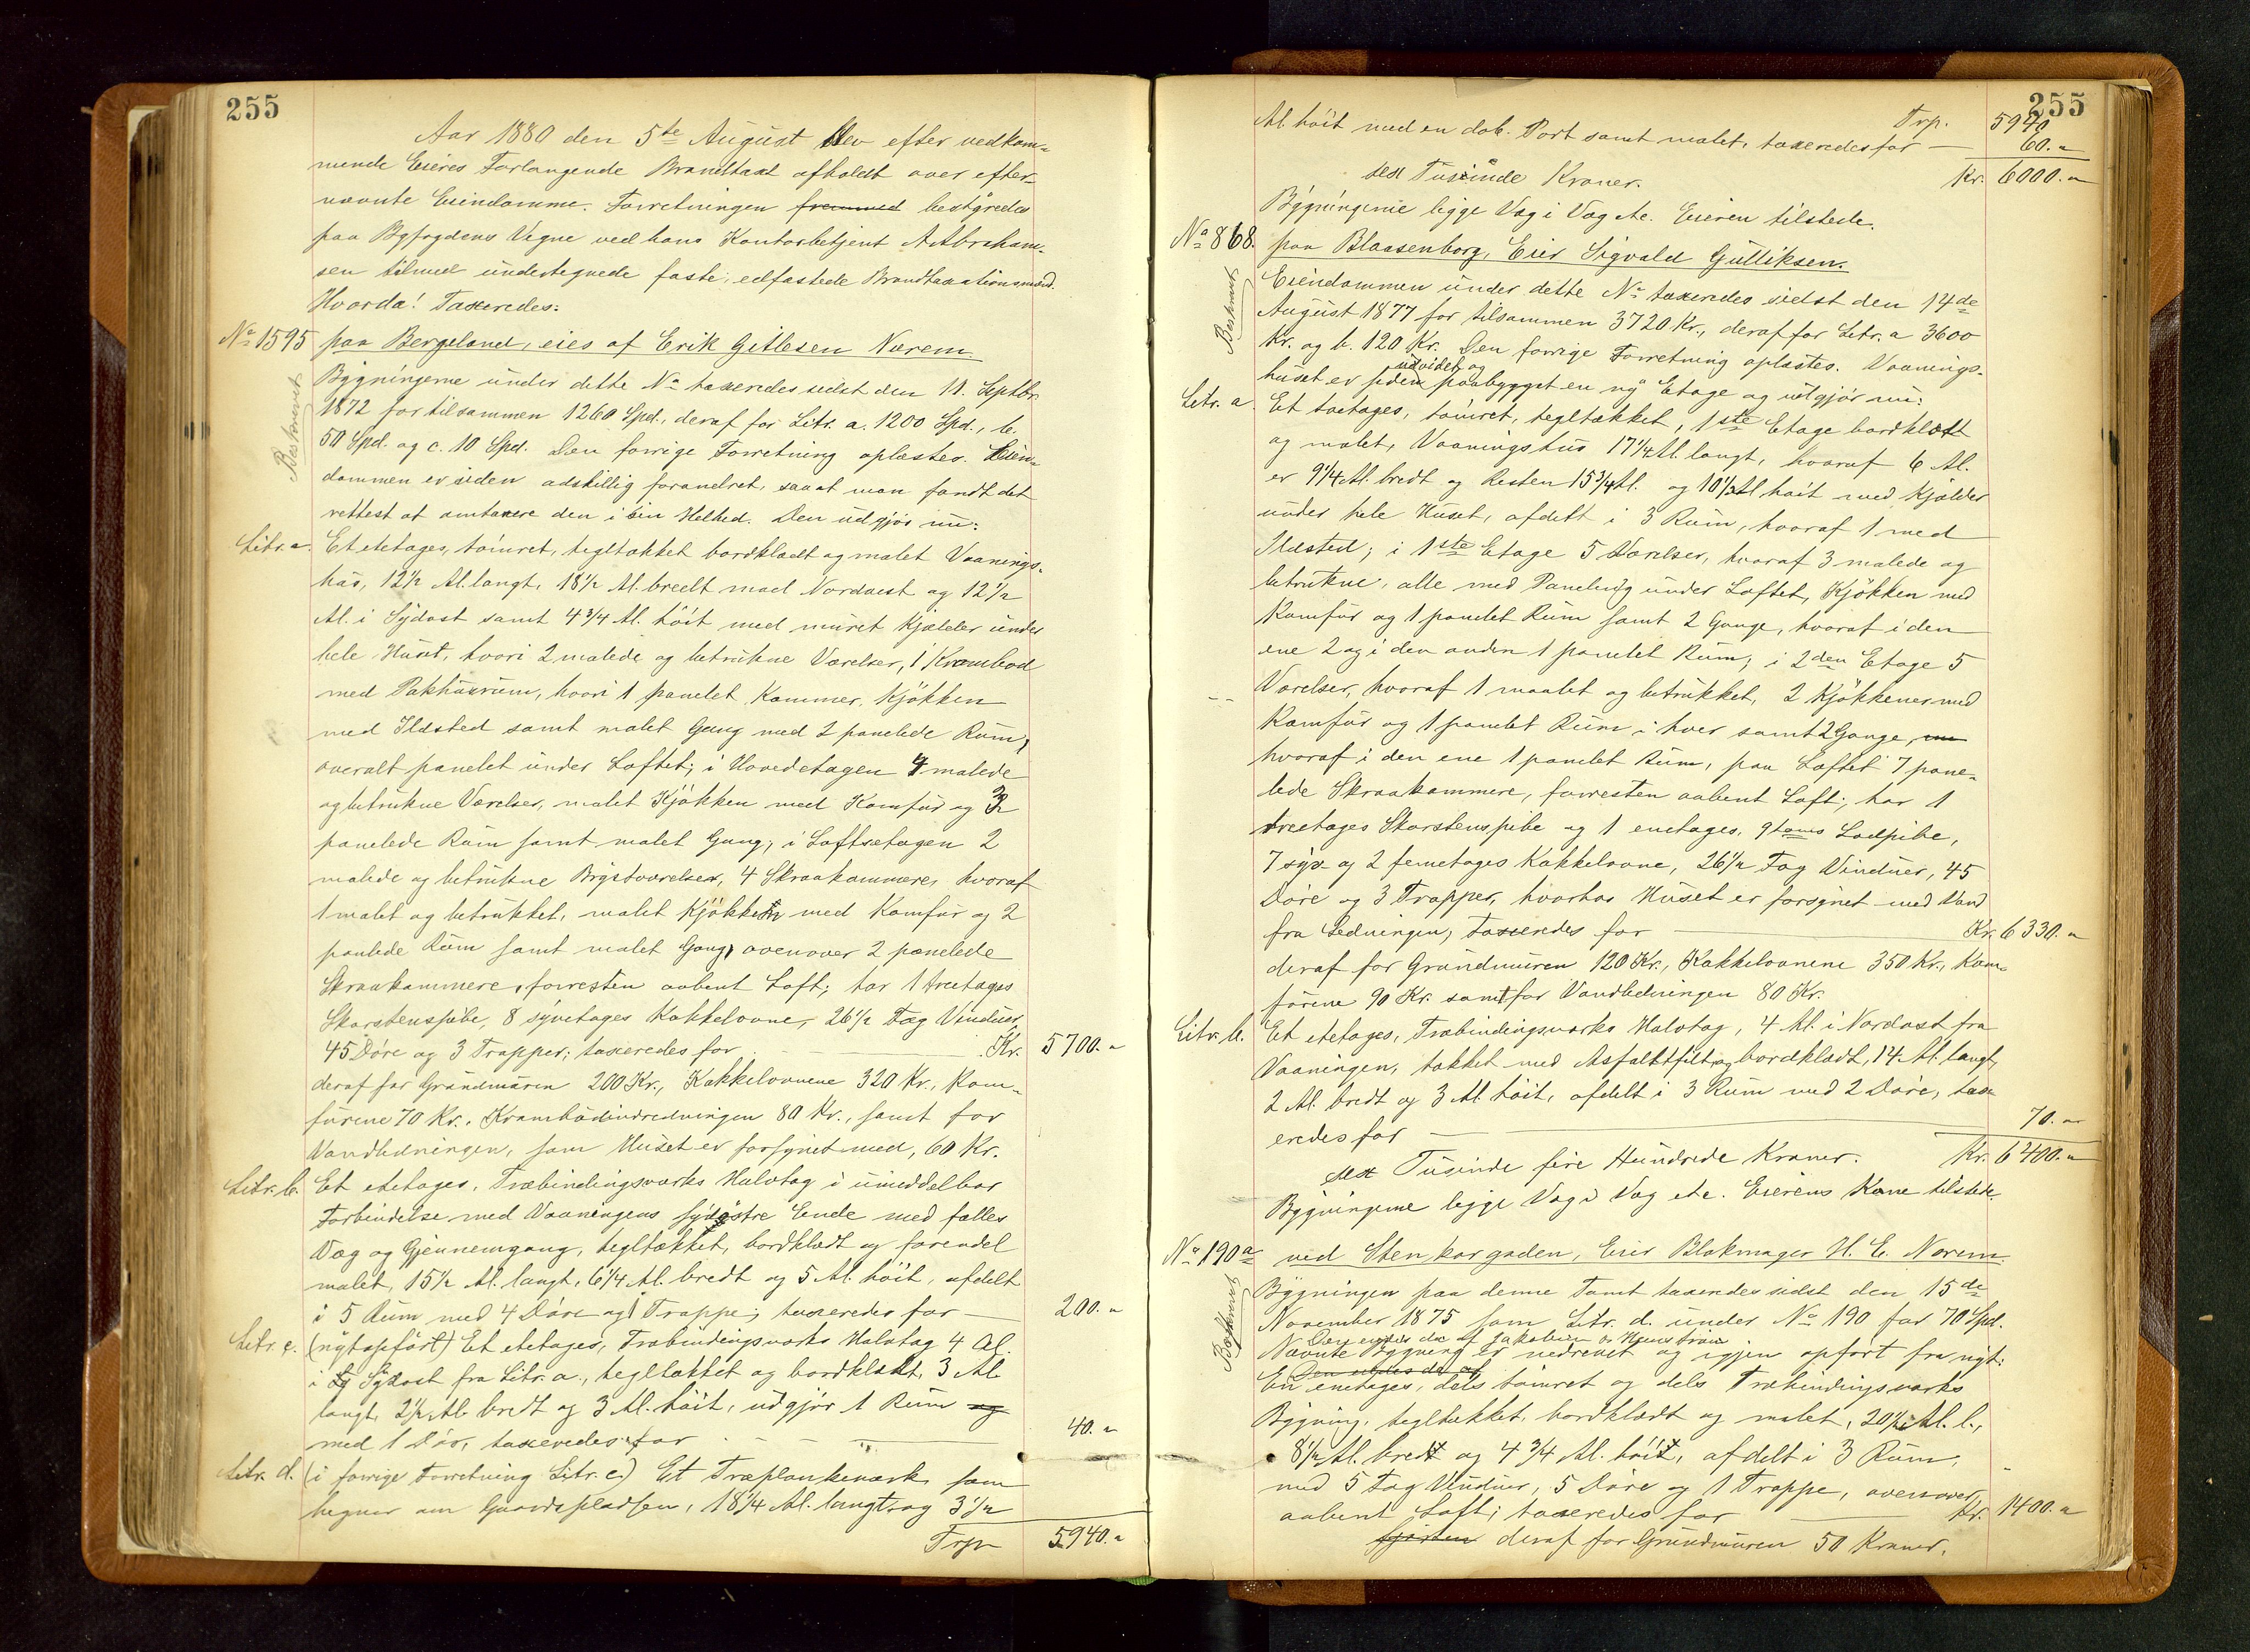 255
Aar 1880 den 5te August blev efter vedkom-
mende Eieres Forlangende Brandtaxt afholdt over efter-
nævnte Eiendomme. Forretningen fremmed bestÿredes
paa Byfogdens Vegne ved hans Kontorbetjent A. Abraham-
sen tilmed undertegnede faste, edfæstede Brandtaxationsmænd.
Hvorda! Taxeredes:
No 1595 paa Bergeland, eies af Erik Gitlesen Nærem
Beskrevet
Bygningerne under dette No taxeredes sidst den 11. Septbr.
1872 for tilsammen 1260 Spd., deraf for Litr. a. 1200 Spd., b.
50 Spd. og c. 10 Spd. Den forrige Forretning oplæstes. Eien-
dommen er siden adskillig forandret, saa at man fandt det
rettest at omtaxere den i sin Helhed. Den udgjør nu:
Litr. a. Et etetages, tømret, tegltækket bordklædt og malet Vaanings-
hus, 12½ Al. langt, 18½ Al. bredt mod Nordvest og 12½
Al. i Sydost samt 4¾ Al. høit med muret Kjælder under
hele Huset, hvori 2 malede og betrukne Værelser, 1 Krambod
med Pakhusrum, hvori 1 panelet Kammer, Kjøkken
med Ildsted samt malet Gang med 2 panelede Rum,
overalt panelet under Loftet; i Hovedetagen 4 malede
og betrukne Værelser, malet Kjøkken med Komfur og 3
panelede Rum samt malet Gang; i Loftsetagen 2
malede og betrukne Brystværelser, 4 Skraakammere, hvoraf
1 malet og betrukket, malet Kjøkken med Komfur og 2
panlede Rum samt malet Gang, ovenover 2 panelede
Skraakammere, forresten aabent Loft; har 1 treetages
Skorstenspibe, 8 syvetages Kakkelovne, 26½ Fag Vinduer,
45 Døre og 3 Trapper; taxeredes for Kr. 5700.„
deraf for Grundmuren 200 Kr., Kakkelovnene 320 Kr., Kom-
furene 70 Kr., Krambodindredningen 80 Kr., samt for
Vandledningen, som Huset er forsynet med, 60 Kr.
Litr. b. Et etetages, Træbindingsværks Halvtag i umiddelbar
Forbindelse med Vaaningens sydøstre Ende med fælles
Væg og Gjennemgang, tegltækket, bordklædt og forendel
malet, 15½ Al. langt, 6¼ Al. bredt og 5 Al. høit, afdelt
i 5 Rum med 4 Døre og 1 Trappe; taxeredes for 200.„
Litr. c. (nyt opført) Et etetages, Træbindingsværks Halvtag 4 Al.
i Sydost fra Litr. a., tegltækket og bordklædt, 3 Al.
langt, 2½ Al. bredt og 3 Al. høit, udgjør 1 Rum og
med 1 Dør, taxeredes for 40.„
Litr. d. (i forrige Forretning Litr. c.) Et Træplankeværk som
hegner om Gaardspladsen, 18¼ Al. langt og 3½
Trp 5940.„
255
Trp. 5940
Al. høit med en dob. Port samt malet, taxeredes for 60.„
sex Tusinde Kroner. Kr. 6000.„
Bygningerne ligge Væg i Væg etc. Eieren tilstede.
No 868. paa Blaasenborg, Eier Sigvald Gulliksen.
Beskrevet
Eiendommen under dette No taxeredes sidst den 14de
August 1877 for tilsammen 3720 Kr., deraf for Litr. a 3600
Kr. og b. 120 Kr. Den forrige Forretning oplæstes. Vaanings-
udvidet og
huset er siden paabygget en ny Etage og udgjør nu:
Litr. a. Et toetages, tømret, tegltækket, 1ste Etage bordklædt
og malet, Vaaningshus 17¼ Al. langt, hvoraf 6 Al.
er 9¼ Al. bredt og Resten 15¾ Al. og 10½ Al høit med Kjælder
under hele Huset, afdelt i 3 Rum, hvoraf 1 med
Ildsted; i 1ste Etage 5 Værelser, hvoraf 3 malede og
betrukne, alle med Paneling under Loftet, Kjøkken med
Komfur og 1 panelet Rum samt 2 Gange, hvoraf i den
ene 2 og i den anden 1 panelet Rum; i 2den Etage 5
Værelser, hvoraf 1 maalet og betrukket, 2 Kjøkkener med
Komfur og 1 panelet Rum i hver samt 2 Gange,
hvoraf i den ene 1 panelet Rum, paa Loftet 7 pane-
lede Skraakammere, forresten aabent Loft; har 1
treetages Skorstenspibe og 1 enetages, 9toms Lodpibe,
7 syv- og 2 femetages Kakkelovne, 26½ Fag Vinduer, 45
Døre og 3 Trapper, hvorhos Huset er forsynet med Vand
fra Ledningen, taxeredes for Kr. 6330.„
deraf for Grundmuren 120 Kr., Kakkelovnene 350 Kr., Kom-
furene 90 Kr. samt for Vandledningen 80 Kr.
Litr. b. Et etetages, Træbindingsværks Halvtag, 4 Al. i Nordost fra
Vaaningen, tækket med Asfaltfilt og bordklædt, 14 Al. langt,
2 Al. bredt og 3 Al. høit, afdelt i 3 Rum med 2 Døre, tax-
eredes for 70.„
sex Tusinde fire Hundrede Kroner. Kr. 6400.„
Bygningerne ligge Væg i Væg etc. Eierens Kone tilstede.
No 190a ved Stenkargaden, Eier Blokmager H. E. Norem.
Beskrevet
Bygningen paa denne Tomt taxeredes sidst den 15de
November 1875 som Litr. d. under No 190 for 70 Spd.
Den eiedes da af Jakobsen
Nævnte Bygning er nedrevet og igjen opført fra nyt:
Den eiedes da af
En enetages, dels tømret og dels Træbindingsværks
Bygning, tegltækket, bordklædt og malet, 20½ Al. l.,
8½ Al. bredt og 4¾ Al. høit, afdelt i 3 Rum,
med 5 Fag Vinduer, 5 Døre og 1 Trappe, ovenover
aabent Loft; taxeredes for Kr. 1400.„
deraf for Grundmuren 50 Kroner.